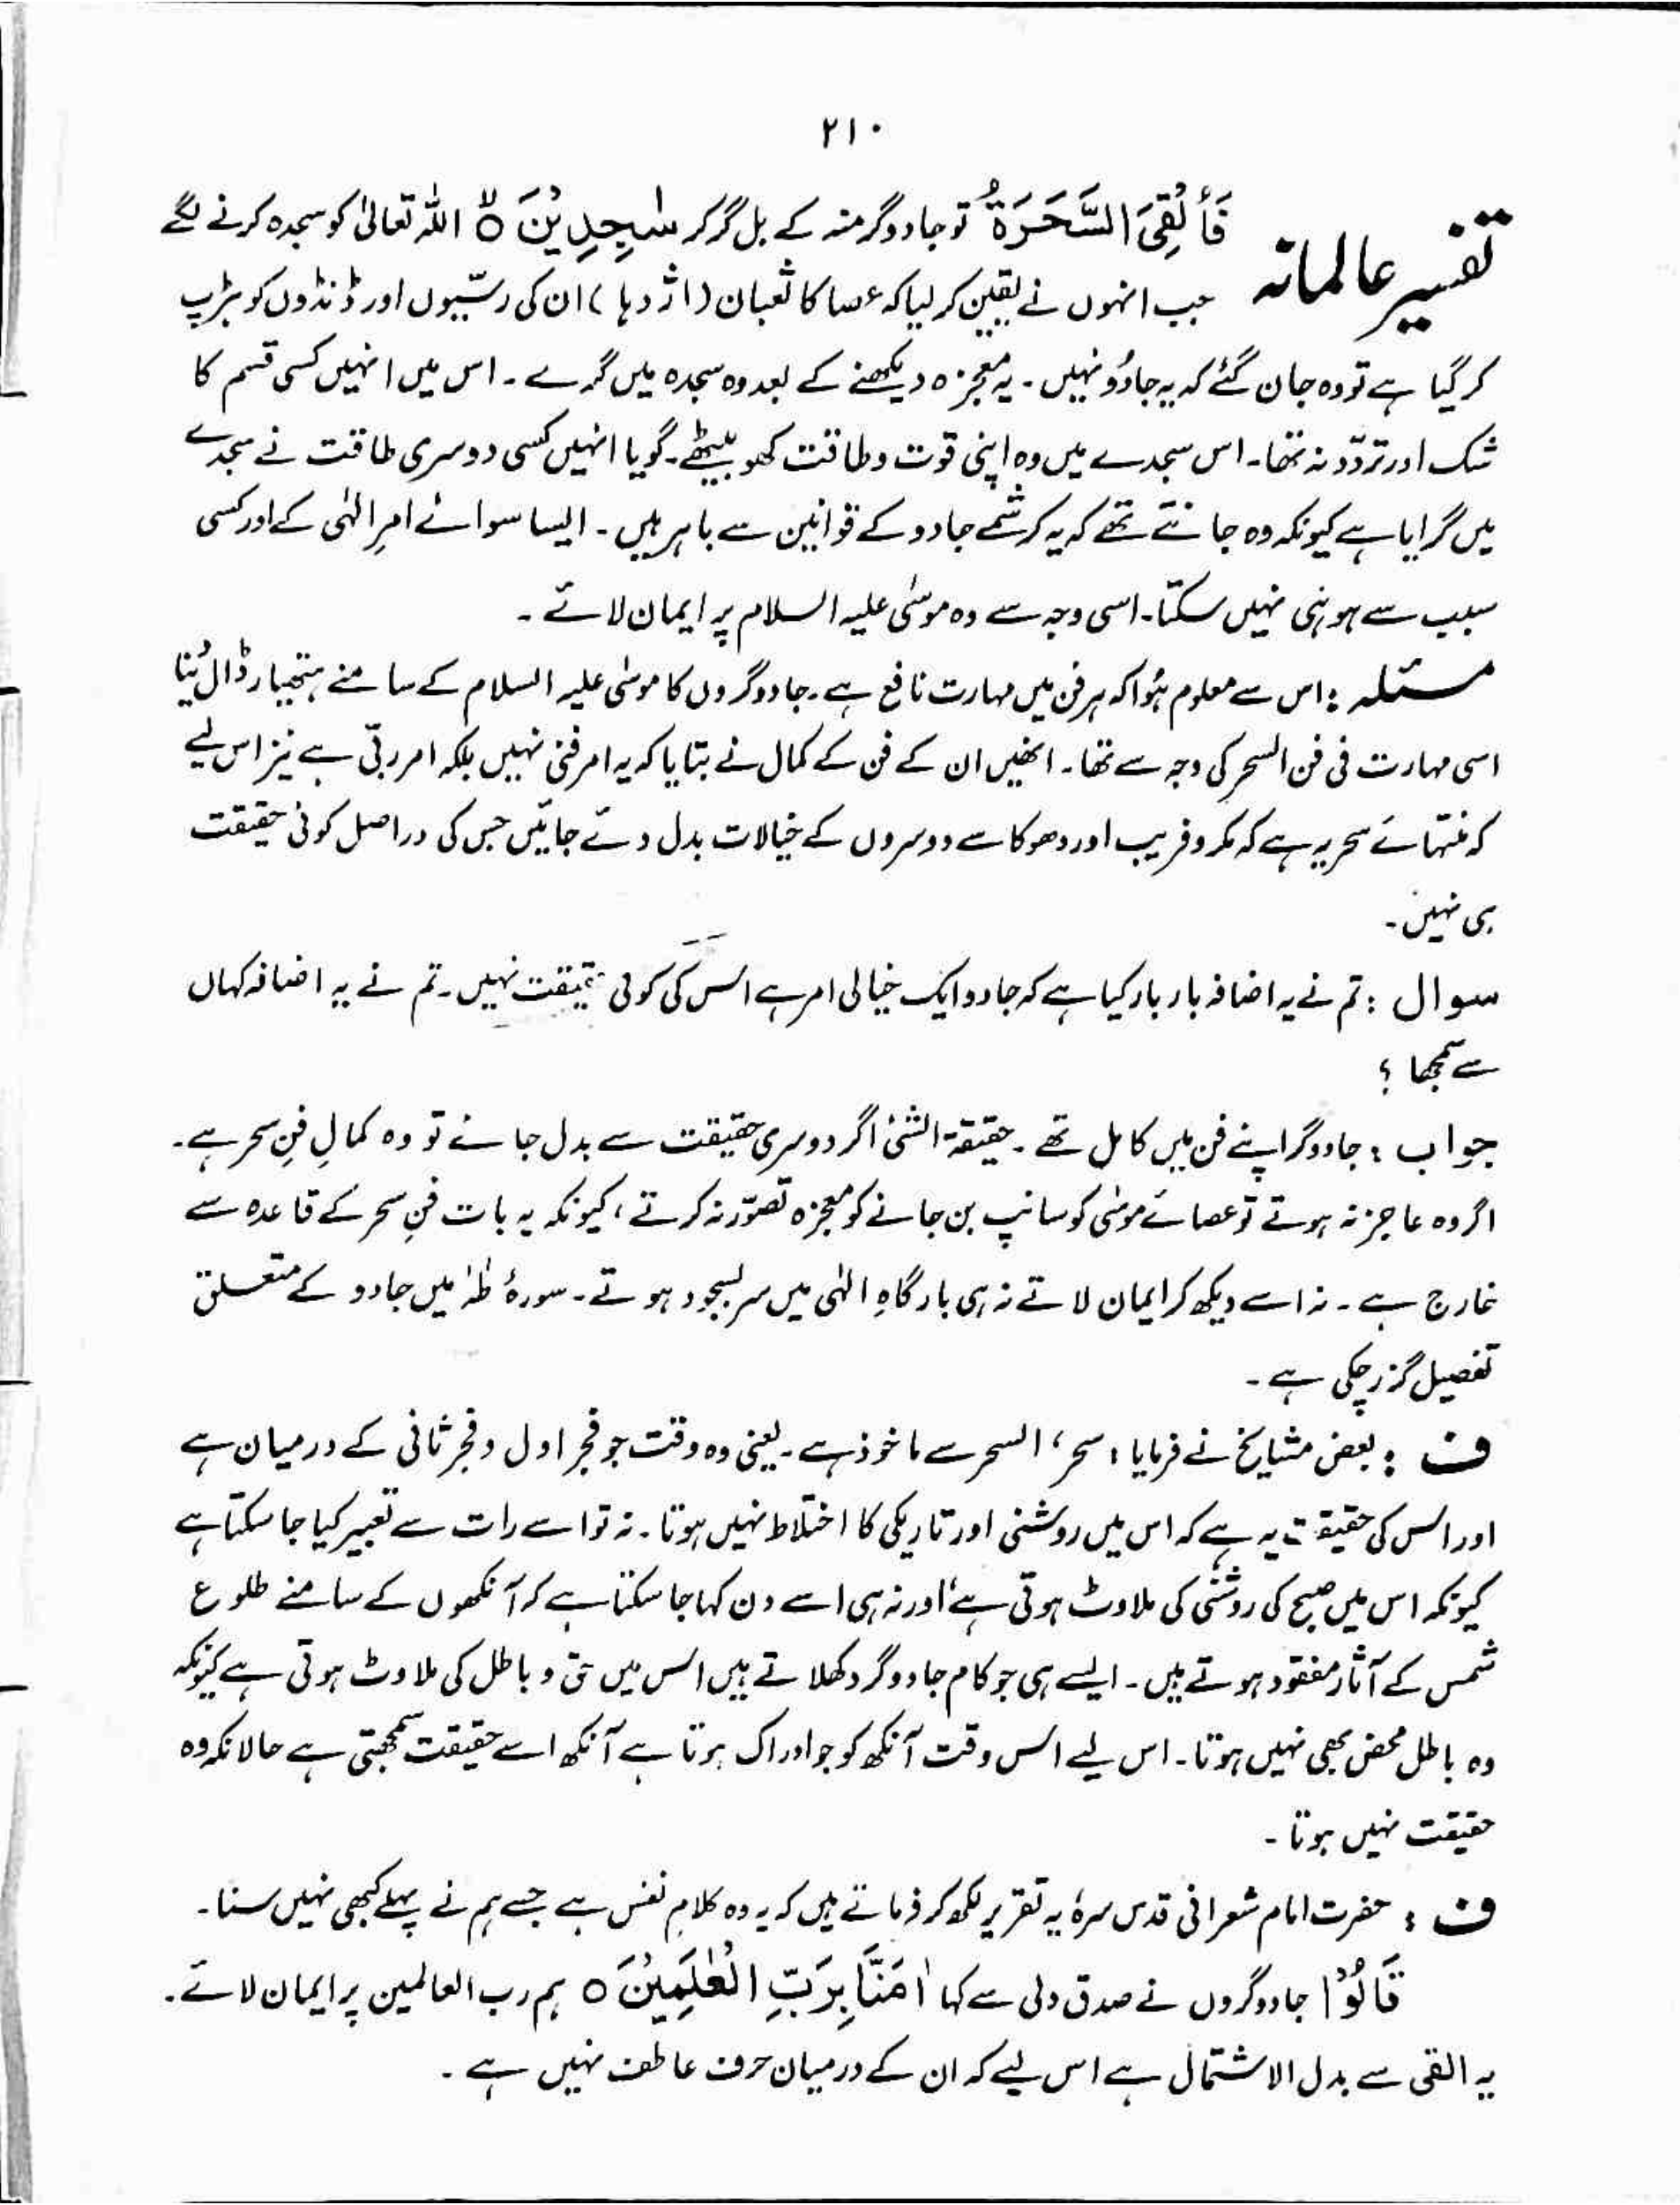 ۲۱۰
تفسیر عالمانہ
فَاُلْقِیَ السَّحَرَةُ تو جادوگر منہ کے بل گر کر سٰجِدِیْنَ ۙ اللہ تعالیٰ کو سجدہ کرنے لگے
جب انہوں نے یقین کر لیا کہ عصا کا ثعبان (اژدہا) ان کی رسّیوں اور ڈنڈوں کو ہڑپ
کر گیا ہے تو وہ جان گئے کہ یہ جادُو نہیں۔ یہ معجزہ دیکھنے کے بعد وہ سجدہ میں گرے۔ اس میں انہیں کسی قسم کا
شک اور تردّد نہ تھا۔ اس سجدے میں وہ اپنی قوت و طاقت کھو بیٹھے۔ گویا انہیں کسی دوسری طاقت نے سجدے
میں گرایا ہے کیونکہ وہ جانتے تھے کہ یہ کرشمے جادو کے قوانین سے باہر ہیں۔ ایسا سوائے امرِ الٰہی کے اور کسی
سبب سے ہو ہی نہیں سکتا۔ اسی وجہ سے وہ موسٰی علیہ السلام پر ایمان لائے۔
مسئلہ : اس سے معلوم ہُوا کہ ہر فن میں مہارت نافع ہے۔ جادوگروں کا موسٰی علیہ السلام کے سامنے ہتھیار ڈال دینا
اسی مہارت فی فن السحر کی وجہ سے تھا۔ انھیں ان کے فن کے کمال نے بتایا کہ یہ امر فنی نہیں بلکہ امر ربّی ہے نیز اس لیے
کہ منتہائے سحر یہ ہے کہ مکر و فریب اور دھوکا سے دوسروں کے خیالات بدل دئے جائیں جس کی دراصل کوئی حقیقت
ہی نہیں۔
سوال : تم نے یہ اضافہ بار بار کیا ہے کہ جادو ایک خیالی امر ہے اس کی کوئی حقیقت نہیں۔ تم نے یہ اضافہ کہاں
سے سمجھا ؟
جواب : جادوگر اپنے فن میں کامل تھے۔ حقیقۃ الشئ اگر دوسری حقیقت سے بدل جائے تو وہ کمالِ فنِ سحر ہے۔
اگر وہ عاجز نہ ہوتے تو عصائے موسٰی کو سانپ بن جانے کو معجزہ تصوّر نہ کرتے، کیونکہ یہ بات فنِ سحر کے قاعدہ سے
خارج ہے۔ نہ اسے دیکھ کر ایمان لاتے نہ ہی بارگاہِ الٰہی میں سربسجود ہوتے۔ سورۂ طٰہٰ میں جادو کے متعلق
تفصیل گزر چکی ہے۔
ف : بعض مشایخ نے فرمایا : سحر، السحر سے ماخوذ ہے۔ یعنی وہ وقت جو فجر اول و فجر ثانی کے درمیان ہے
اور اس کی حقیقت یہ ہے کہ اس میں روشنی اور تاریکی کا اختلاط نہیں ہوتا۔ نہ تو اسے رات سے تعبیر کیا جا سکتا ہے
کیونکہ اس میں صبح کی روشنی کی ملاوٹ ہوتی ہے، اور نہ ہی اسے دن کہا جا سکتا ہے کہ آنکھوں کے سامنے طلوع
شمس کے آثار مفقود ہوتے ہیں۔ ایسے ہی جو کام جادوگر دکھلاتے ہیں اس میں حق و باطل کی ملاوٹ ہوتی ہے کیونکہ
وہ باطل محض بھی نہیں ہوتا۔ اس لیے اس وقت آنکھ کو جو ادراک ہوتا ہے آنکھ اسے حقیقت سمجھتی ہے حالانکہ وہ
حقیقت نہیں ہوتا۔
ف : حضرت امام شعرانی قدس سرہٗ یہ تقریر لکھ کر فرماتے ہیں کہ یہ وہ کلام نفس ہے جسے ہم نے پہلے کبھی نہیں سنا۔
قَالُوْۤا جادوگروں نے صدق دلی سے کہا اٰمَنَّا بِرَبِّ الْعٰلَمِیْنَ ۝ ہم رب العالمین پر ایمان لائے۔
یہ القی سے بدل الاشتمال ہے اس لیے کہ ان کے درمیان حرف عاطف نہیں ہے۔